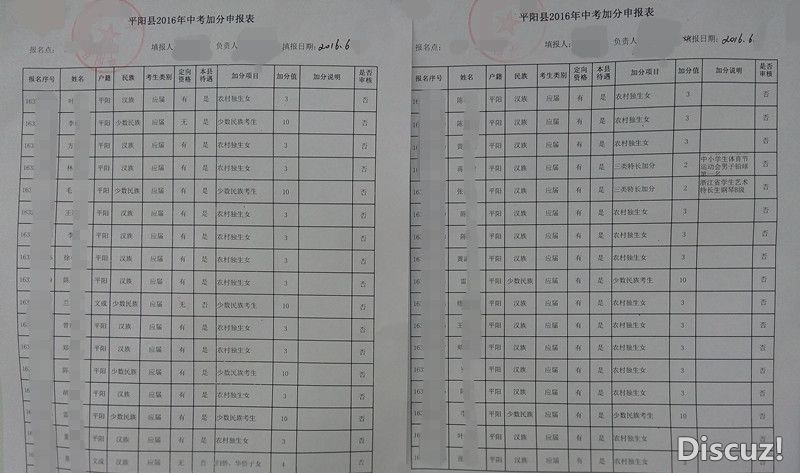 平阳县2016年中考加分申报表
报名点: 填报人 负责人 填报日期: 2016.6
报名序号 姓名 户籍 民族 考生类别 定向资格 本县待遇 加分项目 加分值 加分说明 是否审核
163 叶 平阳 汉族 应届 有 是 农村独生女 3 否
163 李 平阳 少数民族 应届 无 是 少数民族考生 10 否
163 方 平阳 汉族 应届 有 是 农村独生女 3 否
163 林 平阳 汉族 应届 有 是 农村独生女 3 否
163 毛 平阳 少数民族 应届 有 是 少数民族考生 10 否
163 王 平阳 汉族 应届 有 是 农村独生女 3 否
163 李 平阳 汉族 应届 有 是 农村独生女 3 否
163 徐 平阳 汉族 应届 有 是 农村独生女 3 否
163 陈 平阳 汉族 应届 有 是 农村独生女 3 否
16 兰 文成 少数民族 应届 无 否 少数民族考生 10 否
16 曾 平阳 汉族 应届 有 是 农村独生女 3 否
16 郑 平阳 汉族 应届 有 是 农村独生女 3 否
16 陈 平阳 少数民族 应届 有 是 少数民族考生 10 否
16 胡 平阳 汉族 应届 有 是 农村独生女 3 否
16 雷 平阳 少数民族 应届 有 是 少数民族考生 10 否
16 平阳 汉族 应届 有 是 农村独生女 3 否
16 文成 汉族 应届 无 否 归侨、华侨子女 4 否
平阳县2016年中考加分申报表
报名点: 填报人 负责人 填报日期: 2016.6.
报名序号 姓名 户籍 民族 考生类别 定向资格 本县待遇 加分项目 加分值 加分说明 是否审核
163 陈 平阳 汉族 应届 有 是 农村独生女 3 否
163 陈 平阳 汉族 应届 有 是 农村独生女 3 否
163 黄 平阳 汉族 应届 有 是 农村独生女 3 否
163 蒋 平阳 汉族 应届 有 是 三类特长加分 2 中小学生体育节运动会男子铅球第一名 否
163 张 平阳 汉族 应届 有 是 三类特长加分 2 浙江省学生艺术特长生钢琴B级 否
163 陈 平阳 汉族 应届 有 是 农村独生女 3 否
163 陈 平阳 汉族 应届 有 是 农村独生女 3 否
163 黄 平阳 汉族 应届 有 是 农村独生女 3 否
163 雷 平阳 少数民族 应届 有 是 少数民族考生 10 否
163 平阳 汉族 应届 有 是 农村独生女 3 否
163 王 平阳 汉族 应届 有 是 农村独生女 3 否
163 平阳 汉族 应届 有 是 农村独生女 3 否
163 平阳 汉族 应届 有 是 农村独生女 3 否
163 陈 平阳 汉族 应届 有 是 农村独生女 3 否
163 李 平阳 少数民族 应届 有 是 少数民族考生 10 否
163 叶 平阳 汉族 应届 有 是 农村独生女 3
平阳 汉族 应届 有 是 农村独生女
Discuz!